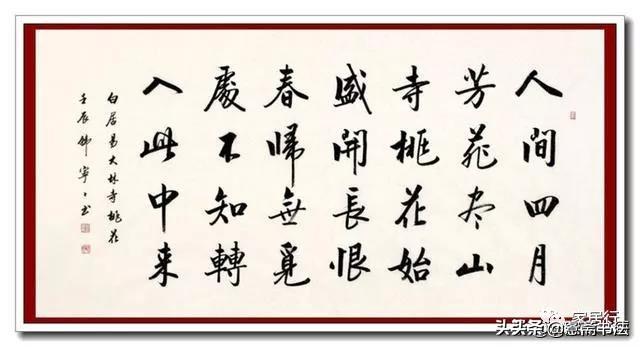 人間四月
芳菲尽山
寺桃花始
盛開長恨
春帰無覓
處不知轉
入此中来
白居易大林寺桃花
壬辰 寧〻书
家居行
头条